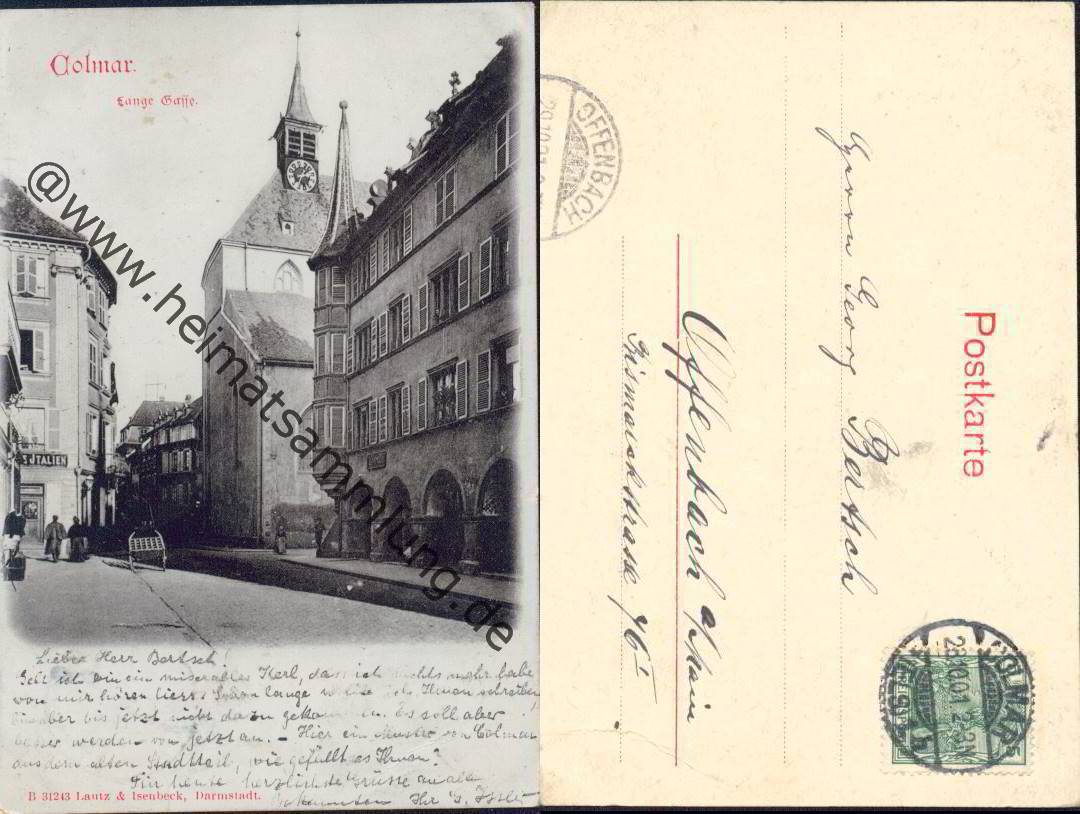 Colmar.
Lange Gasse.
@www.heimatsammlung.de
JTALIEN
Lieber Herr Bertsch!
Gelt ich bin ein miserabler Kerl, dass ich nichts mehr habe
von mir hören liess. Schon lange wollte ich Ihnen schreiben
bin aber bis jetzt nicht dazu gekommen. Es soll aber
besser werden von jetzt an. - Hier ein Muster von Colmar
aus dem alten Stadtteil, wie gefällt es Ihnen?
Für heute herzlichste Grüsse an alle
Bekannten Ihr G.
B 31243 Lautz & Isenbeck, Darmstadt.
OFFENBACH
Postkarte
Herrn Georg Bertsch
Offenbach a/Main
Bismarckstrasse 76 I
COLMAR
(ELS)